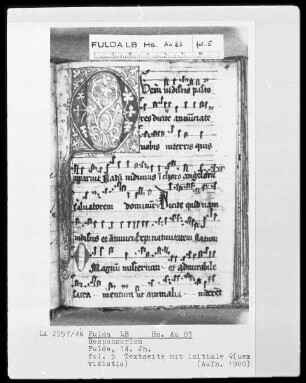 FULDA LB Hs. Au 83 fol. 5
Dem vidistis pasto
res dicite annunciate
nobis in terris quis
apparuit Natū vidimus i choro angelorū
salvatorem dominū Dicite quid nam
vidistis et
O Magnū misterium et admirabile
sacra mentum ut animalia
LA 2557/46 Fulda LB Hs. Au 83
Responsorien
Fulda, 14. Jh.
fol. 5 Textseite mit Initiale Q(uem
vidistis) (Aufn. 1980)